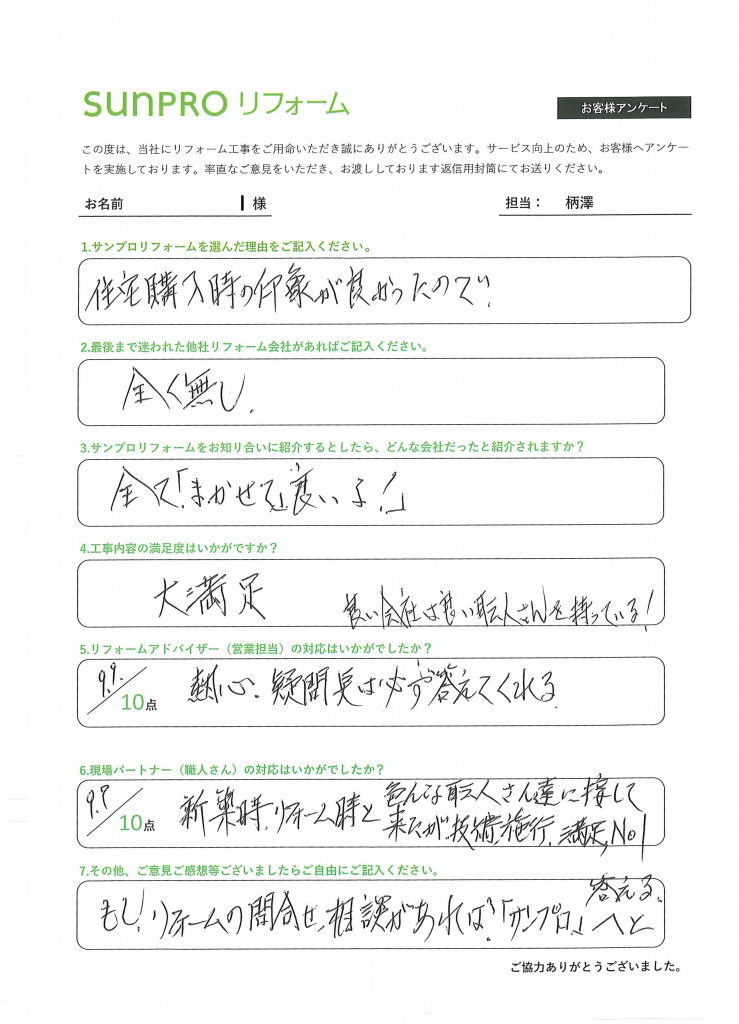 SUNPRO リフォーム
お客様アンケート
この度は、当社にリフォーム工事をご用命いただき誠にありがとうございます。サービス向上のため、お客様へアンケー
トを実施しております。率直なご意見をいただき、お渡ししております返信用封筒にてお送りください。
お名前 様 担当: 柄澤
1.サンプロリフォームを選んだ理由をご記入ください。
住宅購入時の印象が良かったので。
2.最後まで迷われた他社リフォーム会社があればご記入ください。
全く無し.
3.サンプロリフォームをお知り合いに紹介するとしたら、どんな会社だったと紹介されますか?
全て「まかせて」良いよ!」
4.工事内容の満足度はいかがですか?
大満足
良い会社は良い職人さんを持っている!
5.リフォームアドバイザー(営業担当)の対応はいかがでしたか?
9.9/10点 熱心、疑問点は必ず答えてくれる
6.現場パートナー(職人さん)の対応はいかがでしたか?
色んな職人さん達に接して
9.9/10点 新築時,リフォーム時と 来たが、技術,施行,満足,No1
7.その他、ご意見ご感想等ございましたらご自由にご記入ください。
もし,リフォームの問合せ,相談があれば、「サンプロ」へと
答える.
ご協力ありがとうございました。